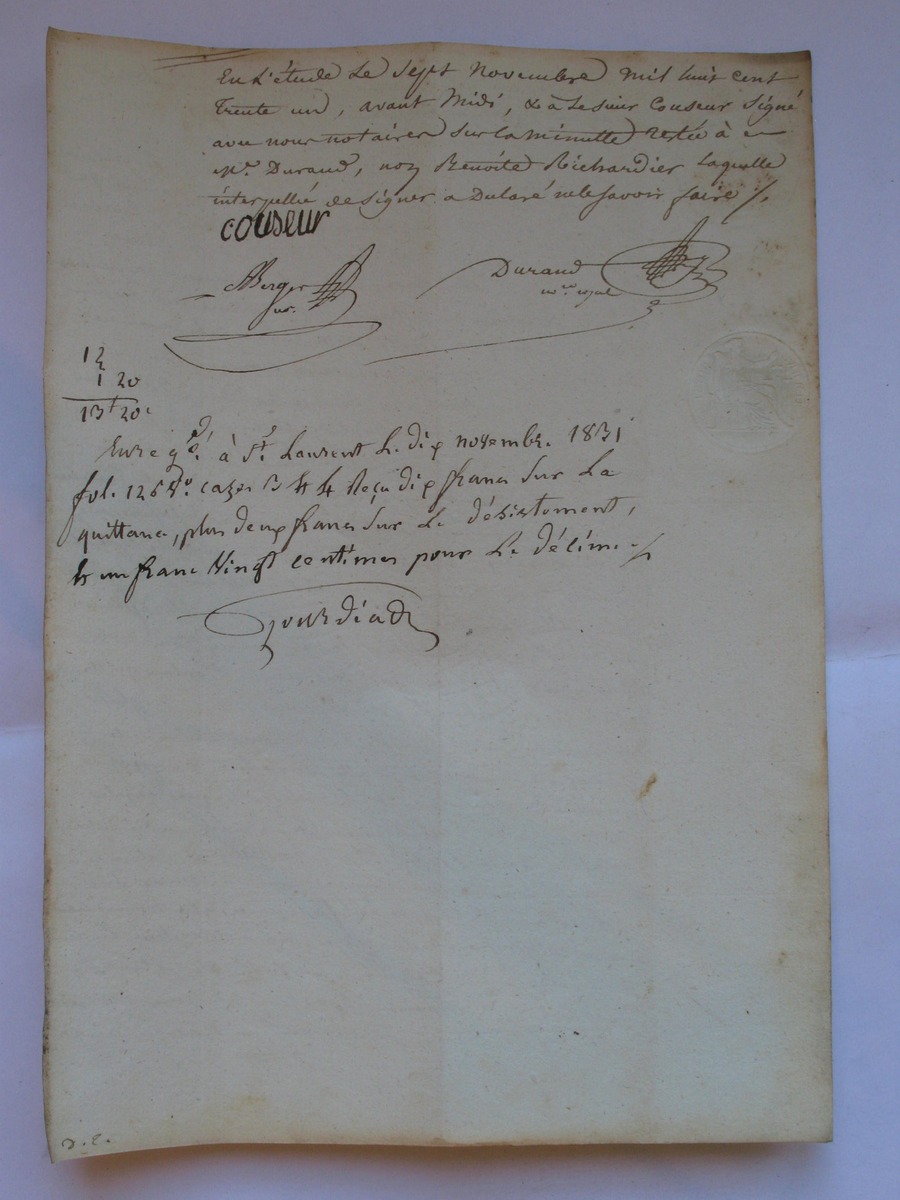 En l'étude Le Sept Novembre mil huit cent
trente un, avant Midi, & à Le sieur Couseur Signé
avec nous notaires sur la minutte restée à
Mᵉ. Durand, non Benoite Richardier laquelle
interpellée de signer a Déclaré ne le savoir faire /.
couseur
Berger
Durand
nᵒᵗʳᵉ royal
12
1 20
13 20
Enregᵈ. à Sᵗ. Laurent Le dix novembre 1831
fol. 126 Vᵒ. cazes 3 & 4 Reçu dix francs Sur La
quittance, plus deux francs sur Le désistement,
& un franc Vingt centimes pour Le décime /
D. C.